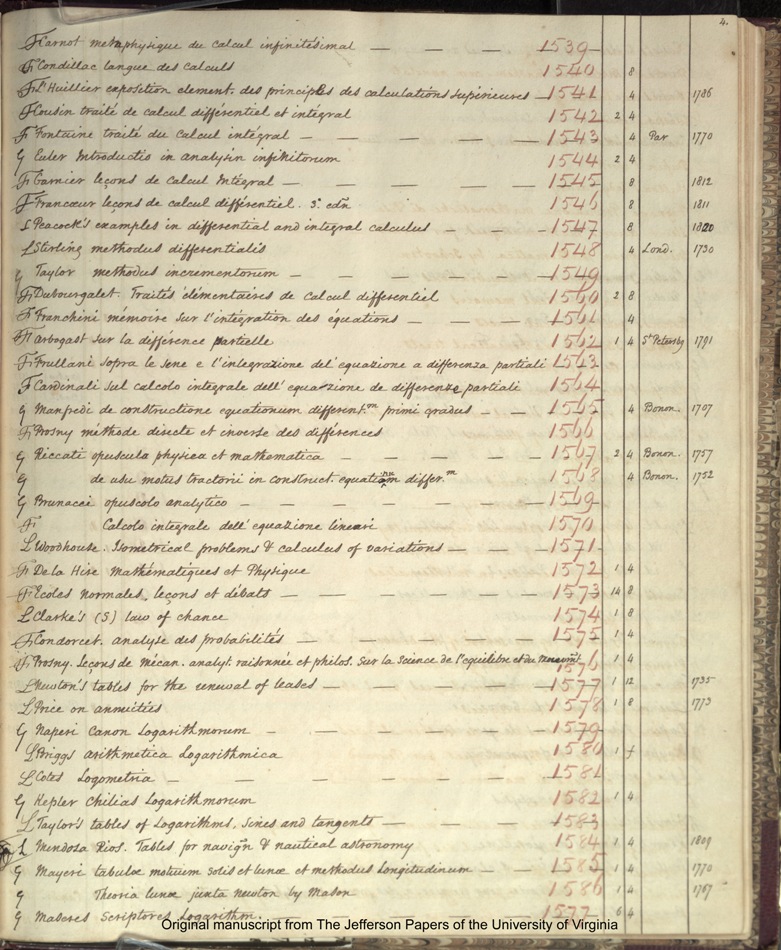 4.
F Carnot metaphysique du calcul infinitésimal — — — 1539
F Condillac langue des calculs 1540 8
F L'Huillier exposition element. des principes des calculations supérieures — 1541 4 1786
F Cousin traité de calcul différentiel et intégral 1542 2 4
F Fontaine traité du calcul intégral — — — — 1543 4 Par 1770
G Euler Introductio in analysin infinitorum 1544 2 4
F Garnier leçons de calcul Integral — — — — 1545 8 1812
F Francœur leçons de calcul différentiel. 1546 8 1811
L Peacock's examples in differential and integral calculus — — — 1547 8 1820
L Stirling methodus differentialis 1548 4 Lond. 1730
G Taylor methodus incrementorum — — — — 1549
F Dubourgalet. Traités élémentaires de calcul differentiel 1560 2 8
F Franchini mémoire sur l'intégration des équations — — — 1561 4
F Arbogast sur la différence partielle 1562 1 4 St Petersbg 1791
F Frullani sopra le sene e l'integrazione del' equazione a differenza partiali 1563
F Cardinali sul calcolo integrale dell' equazione de differenze partiali 1564
G Manfredi de constructione equationum different.m primi gradus — — 1565 4 Bonon. 1707
F Prosny méthode directe et inverse des différences 1566
G Riccati opuscula physica et mathematica — — — — 1567 2 4 Bonon. 1757
G de usu motus tractorii in construct. differ.m 1568 4 Bonon. 1752
G Brunacci opuscolo analytico — — — — — 1569
F Calcolo integrale dell' equazione lineari 1570
L Woodhouse. Isometrical problems & calculus of variations — — — 1571
F De la Hire Mathématiques et Physique 1572 1 4
F Ecoles normales, leçons et débats — — — — 1573 14 8
L Clarke's (S) law of chance 1574 1 8
F Condorcet. analyse des probabilités — — — — 1575 1 4
F Prosny. Leçons de mécan. analyt. raisonnée et philos. sur la science de l'equilibre et du 1576 1 4
L Newton's tables for the renewal of leases — — — — 1577 1 12 1735
L Price on annuities 1578 1 8 1773
G Naperi Canon Logarithmorum — — — — — 1579
L Briggs arithmetica Logarithmica 1580 1 f
L Cotes Logometria — — — — — 1581
G Kepler Chilias Logarithmorum 1582 1 4
L Taylor's tables of Logarithms, sines and tangents — — — 1583
L Mendoza Rios. Tables for navign & nautical astronomy 1584 1 4 1809
G Mayeri tabulæ motuum solis et lunæ et methodus Longitudinum — — 1585 1 4 1770
G Theoria lunæ juxta newton by Mason 1586 1 4 1767
G Maseres Scriptores Logarithm. — — — — 1577 6 4
Original manuscript from The Jefferson Papers of the University of Virginia